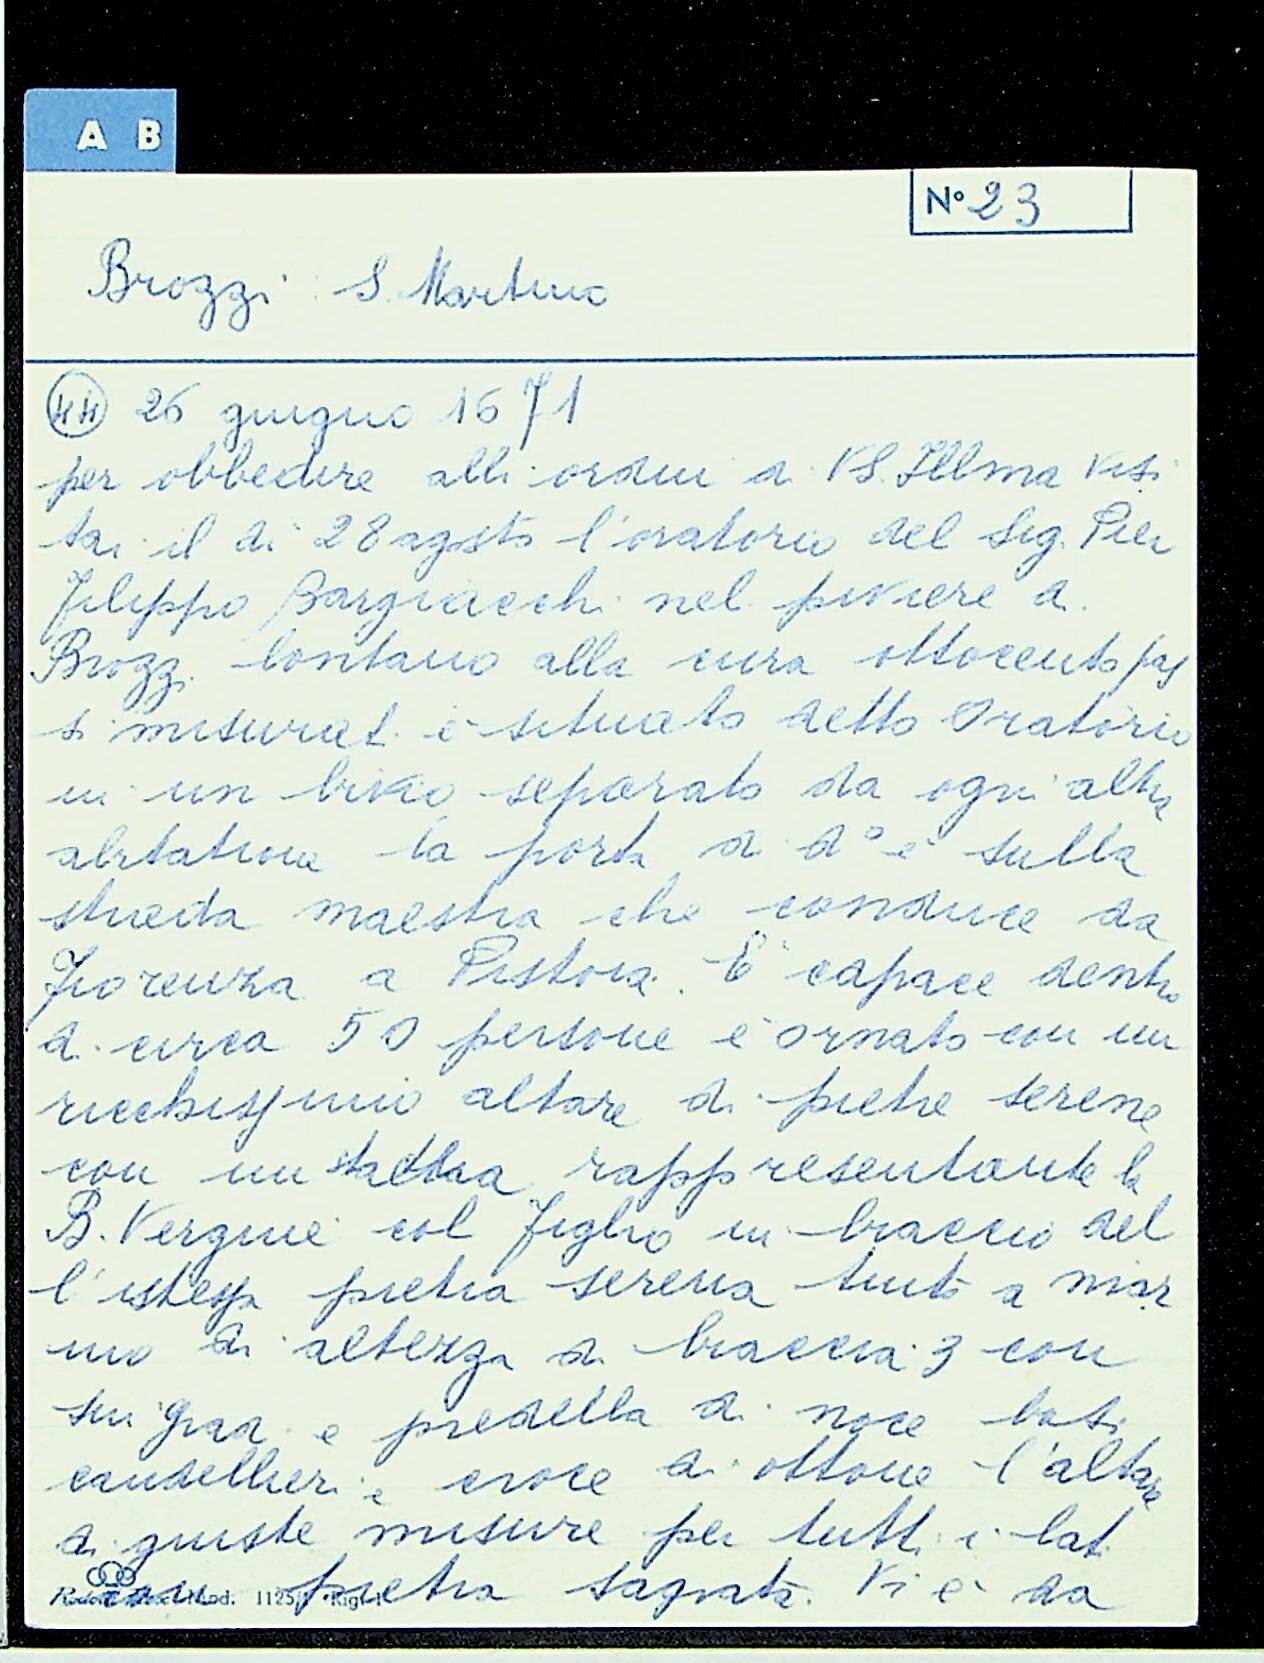 A B
N° 23
Brozzi S. Martino
44 26 giugno 1671
per obbedire alli ordini di VS. Illma visi
tai il di 28 agsto l'oratorio del Sig. Pier
Filippo Bargiacchi nel piviere di
Brozzi lontano alla cura ottocento pas
si misurati è situato detto Oratorio
in un bivio separato da ogni altra
abitatione la porta di d° è sulla
strada maestra che conduce da
Fiorenza a Pistoia. È capace dentro
di circa 50 persone è ornato con un
ricchissimo altare di pietre serene
con un rappresentante la
B. Vergine col figlio in braccio del
l'istessa pietra serena tinto a mar
mo di altezza di braccia 3 con
suoi gradi e predella di noce
candellieri e croce di ottone l'altare
di giuste misure per tutti i lati
con pietra sagrata. Vi è da
Mod. 1125